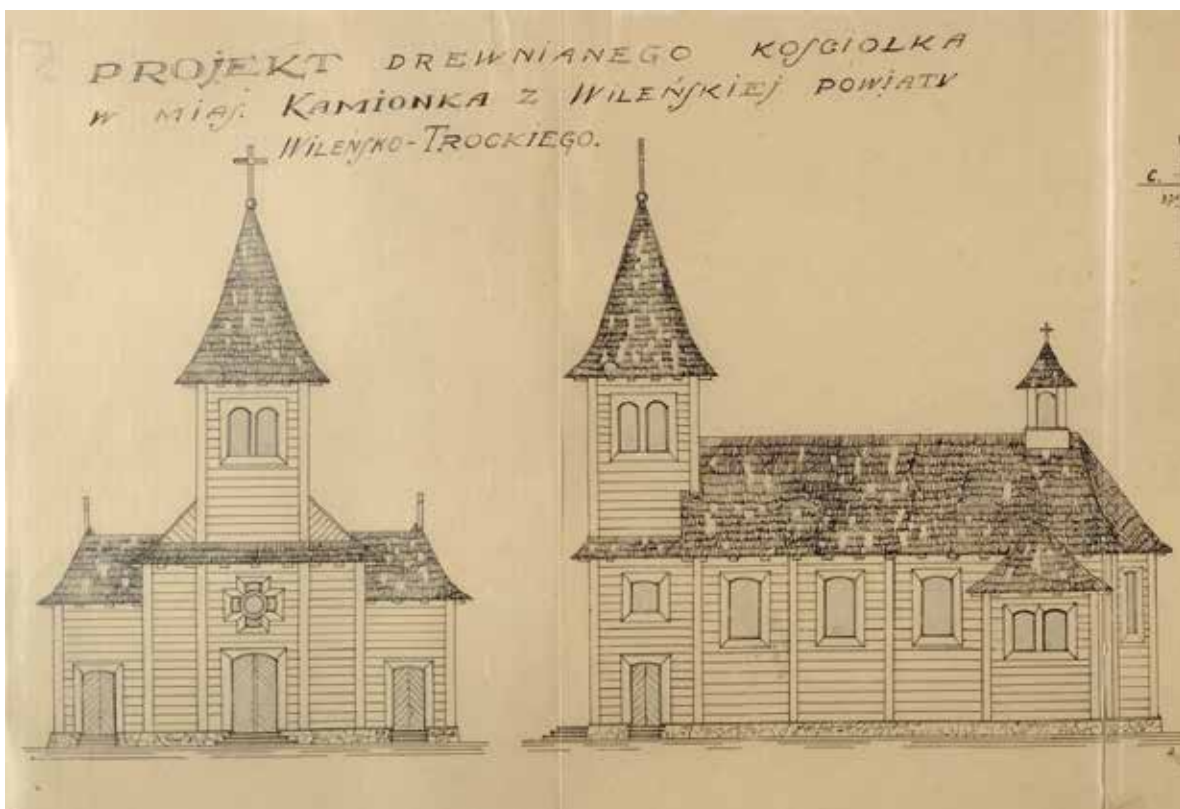 PROJEKT DREWNIANEGO KOŚCIOLKA
W MIAS. KAMIONKA Z WILEŃSKIEJ POWIATU
WILEŃSKO-TROCKIEGO.
C.